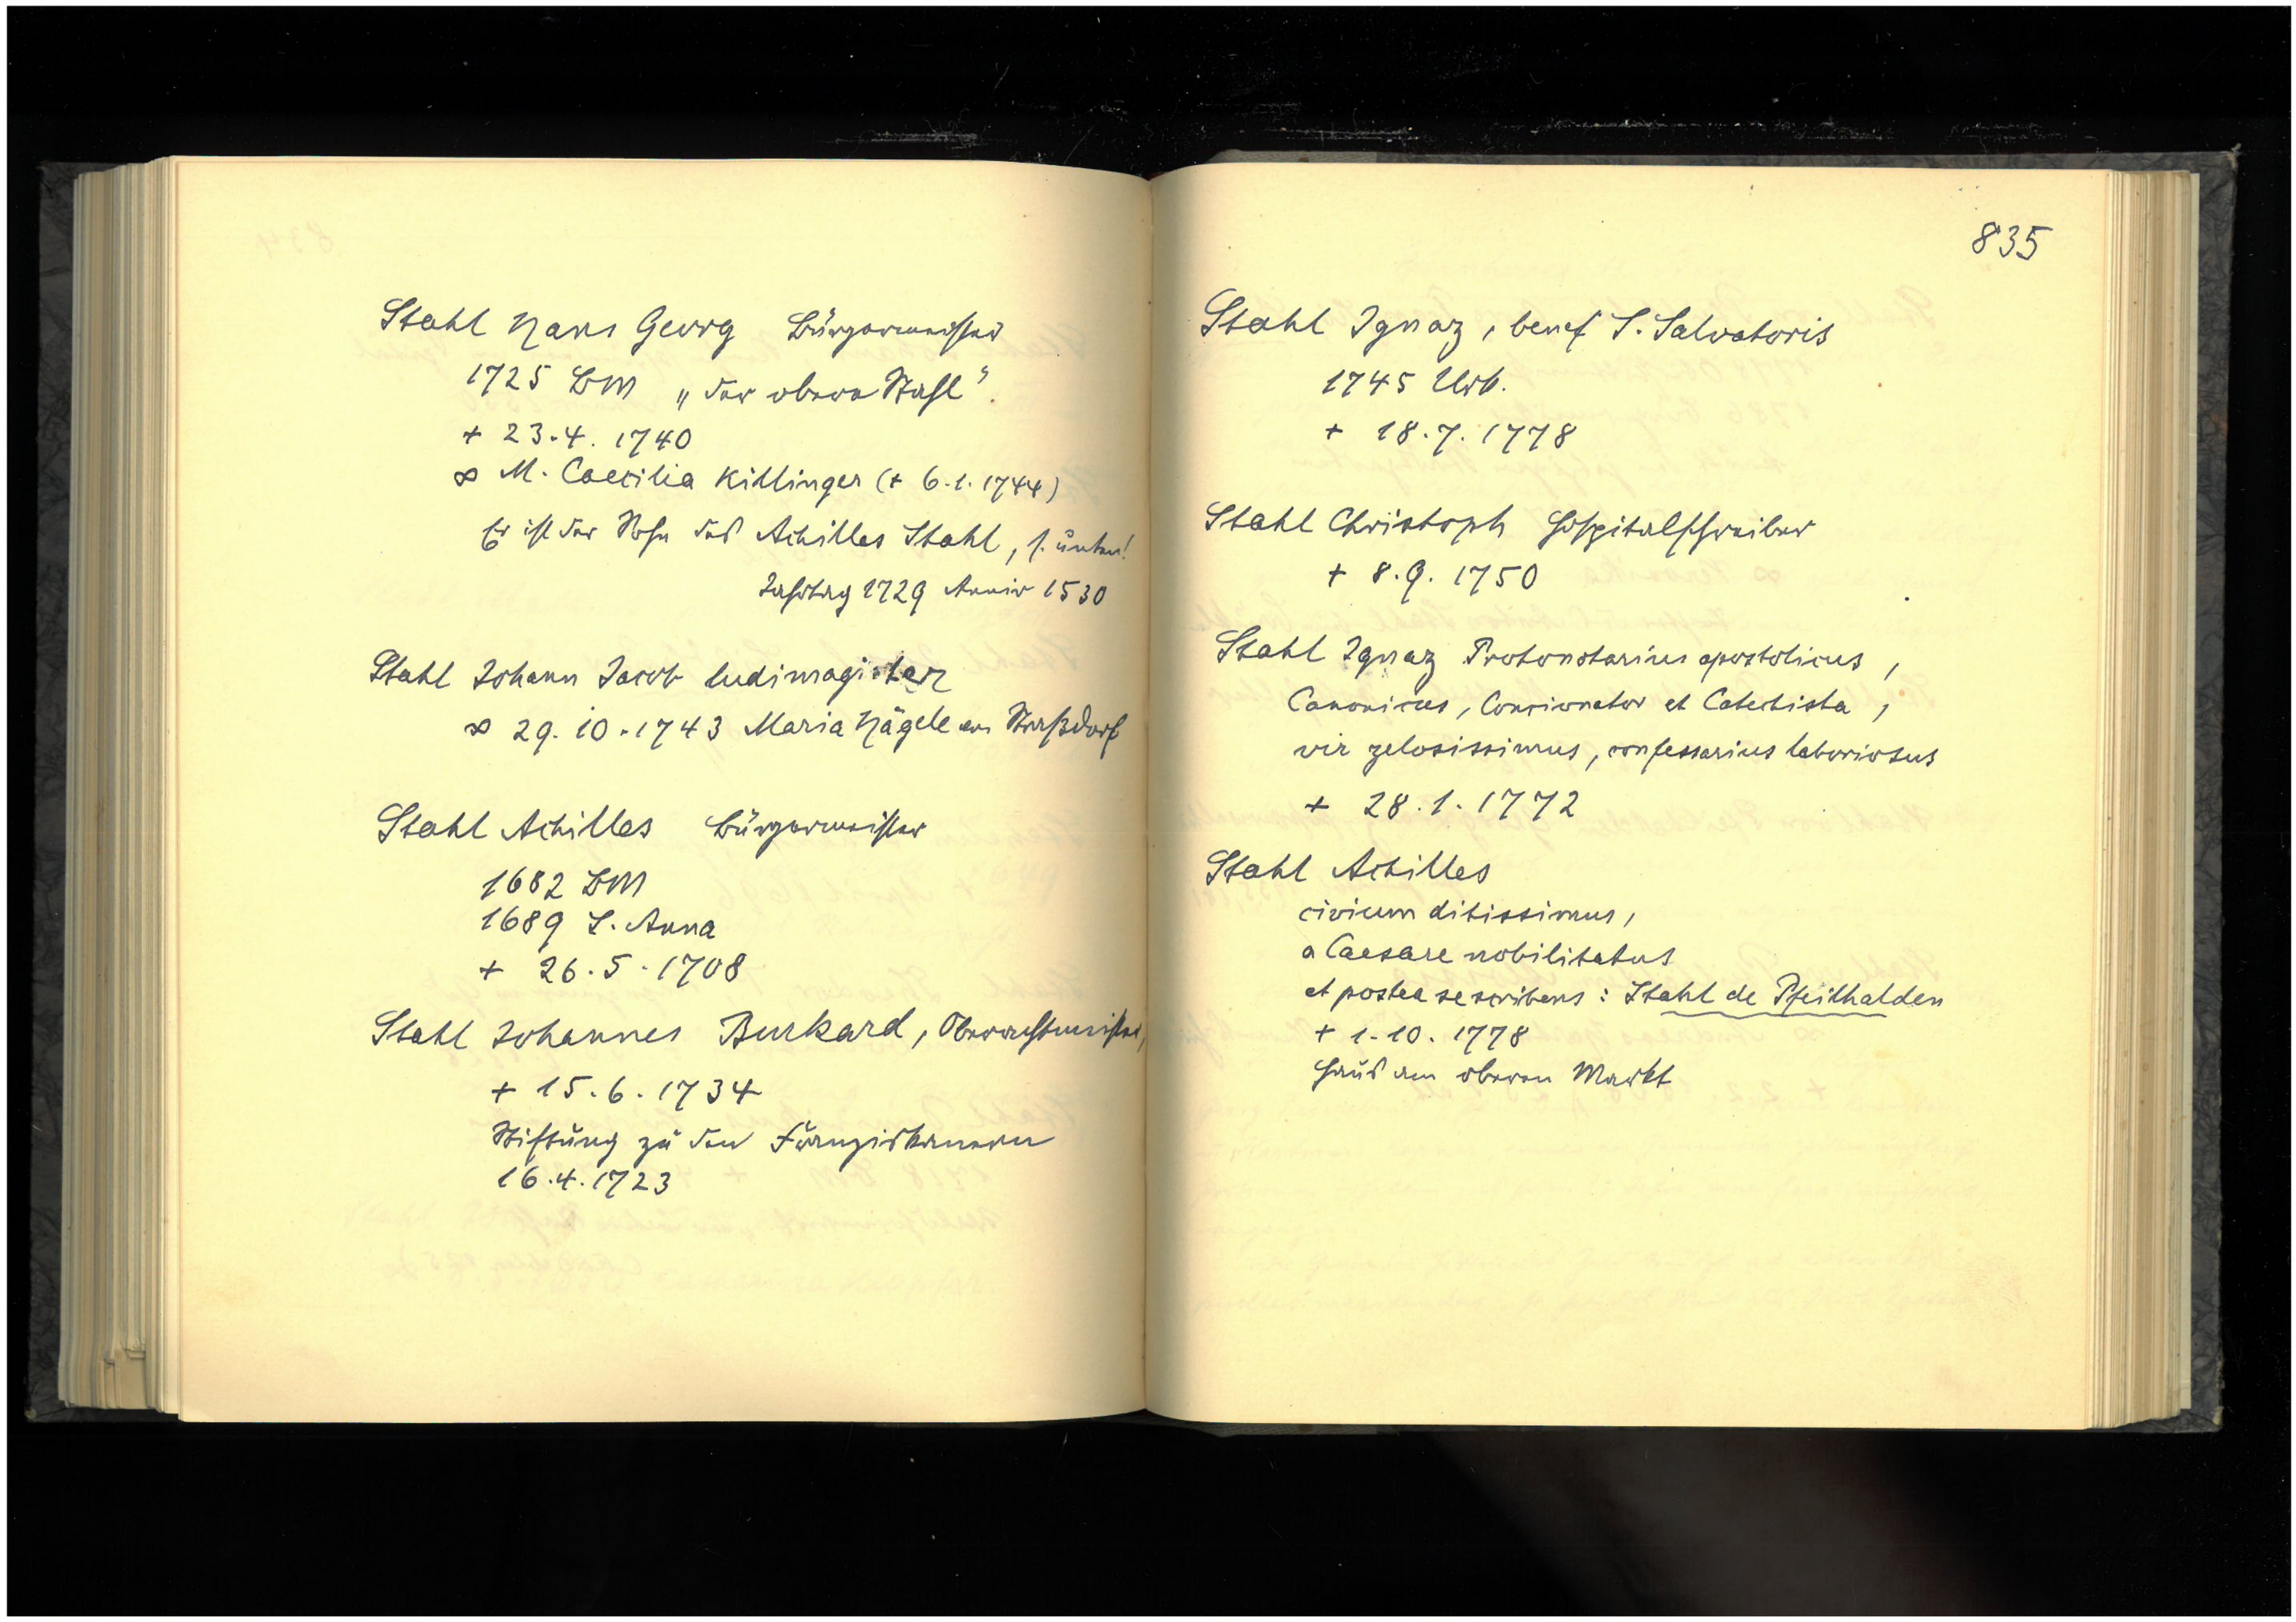 Stahl Hans Georg Bürgermeister
1725 BM „der obere Stahl".
+ 23.4. 1740
∞ M. Caecilia Killinger (+ 6.1.1744)
Er ist der Sohn des Achilles Stahl, s. unten!
Jahrtag 1729 Anniv 1530
Stahl Johann Jacob ludimagister
∞ 29.10.1743 Maria Hägele von Straßdorf
Stahl Achilles Bürgermeister
1682 BM
1689 S. Anna
+ 26.5.1708
Stahl Johannes Burkard, Oberachtmeister,
+ 15.6.1734
Stiftung zu den Franziskanern
16.4.1723
835
Stahl Ignaz, benef S. Salvatoris
1745 Urb.
+ 18.7.1778
Stahl Christoph Hospitalschreiber
+ 8.9.1750
Stahl Ignaz Protonotarius apostolicus,
Canonicus, Concionator et Catechista,
vir zelosissimus, confessarius laboriosus
+ 28.1.1772
Stahl Achilles
civium ditissimus,
a Caesare nobilitatus
et postea se scribens: Stahl de Pfeilhalden
+ 1.10.1778
Haus am oberen Markt